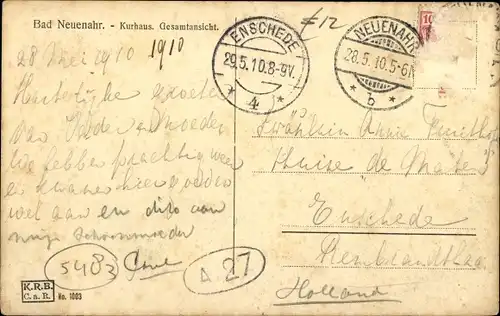 Bad Neuenahr. - Kurhaus. Gesamtansicht.
28 Mei 1910 1910
Hartelijke groeten
van Vader en Moeder
We hebben prachtig weer
en kwamen hier goeden
wel aan en dito van
mijn Schoonmoeder
ENSCHEDE
29.5.10.8-9V.
* 4 *
#12
NEUENAHR
28.5.10.5-6N.
* b *
10
Fräulein Anna
Huise de
Enschede
Rembrandtlaan
Holland
5483
A 27
K.R.B.
C.a.R.
No. 1003